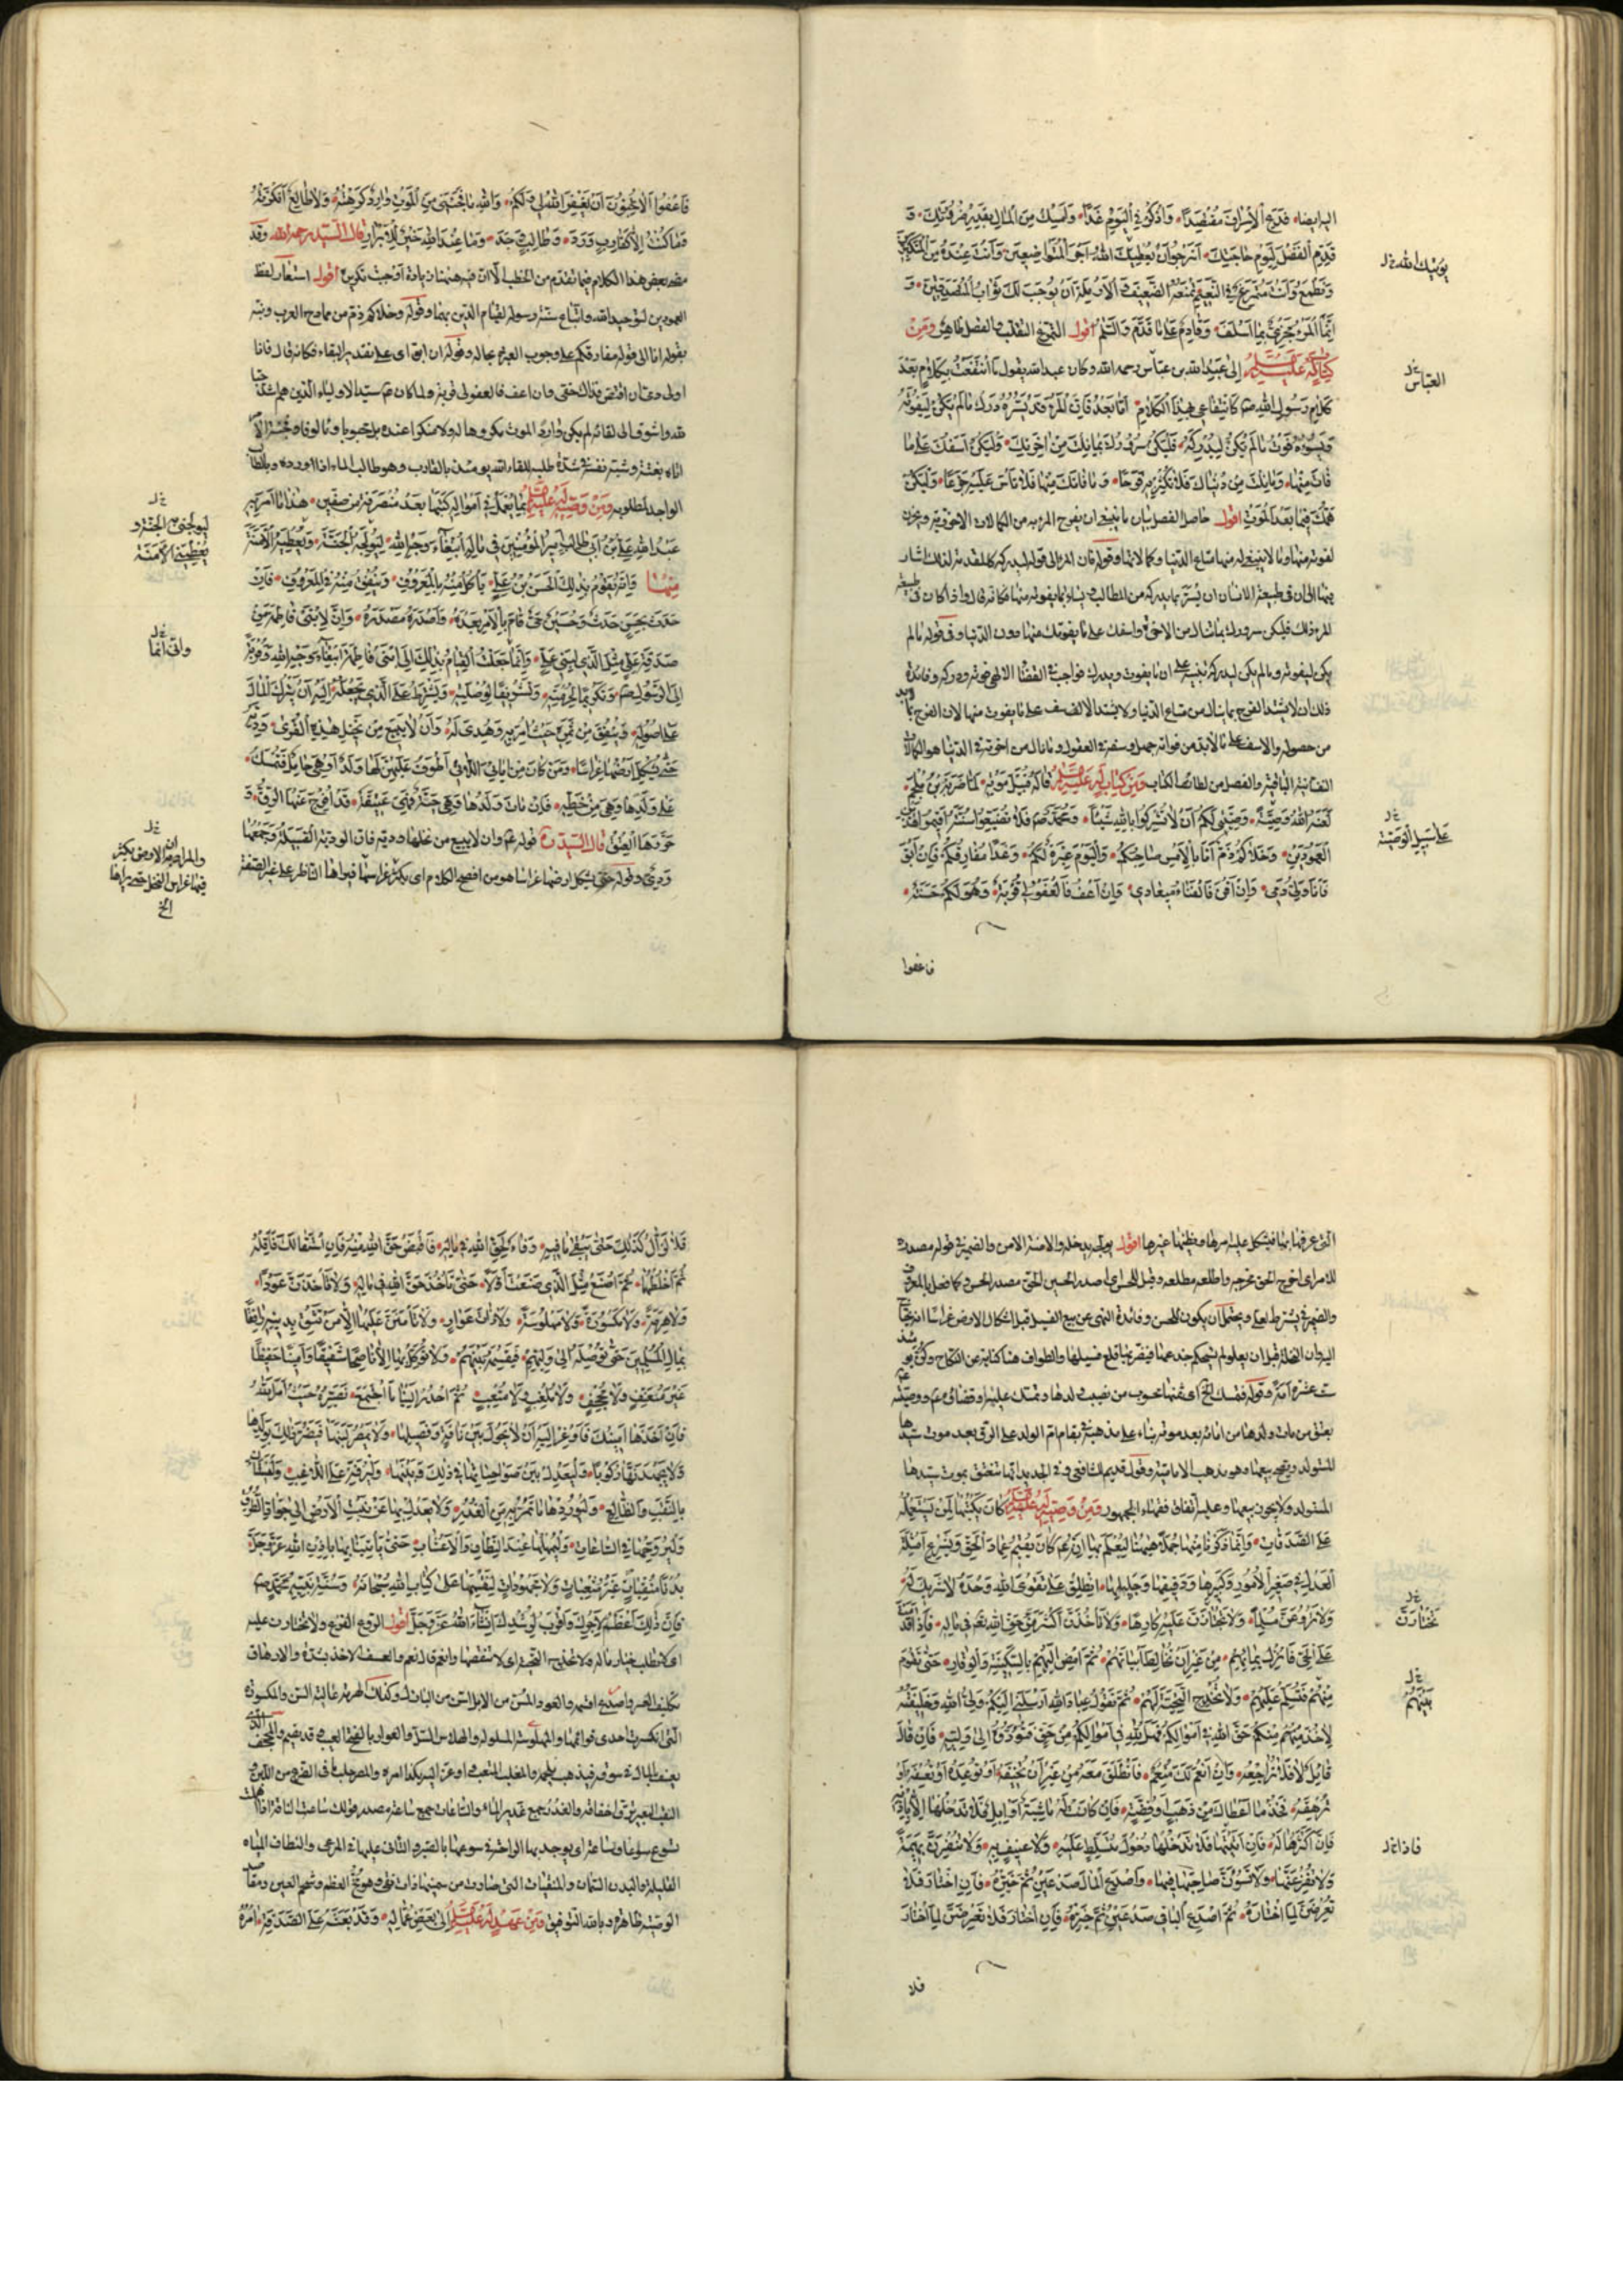 البه ايضا فدع الاسراف مقتصدا واذكر في اليوم غدا وامسك من المال بقدر ضرورتك و
قدم الفضل ليوم حاجتك اترجو ان يعطيك الله اجر المتواضعين وانت عنده من المتكبرين
يؤتيك الله خ ل
وتطمع وانت متمرغ في النعيم تمنعه الضعيف والارملة ان يوجب لك ثواب المتصدقين و
انما المرء مجزي بما اسلف وقادم على ما قدم والسلام اقول التمرغ التقلب والفصل ظاهر ومن
كتاب له عليه السلام الى عبيد الله بن عباس رحمه الله وكان عبد الله يقول ما انتفعت بكلام بعد
العباس خ ل
كلام رسول الله ص كانتفاعي بهذا الكلام اما بعد فان المرء قد يسره درك ما لم يكن ليفوته
ويسوءه فوت ما لم يكن ليدركه فليكن سرورك بما نلت من اخرتك وليكن اسفك على ما
فاتك منها وما نلت من دنياك فلا تكثر به فرحا وما فاتك منها فلا تأس عليه جزعا وليكن
همك فيما بعد الموت اقول حاصل الفصل بيان ما ينبغي ان يفرح المرء به من الكمالات الاخروية ويحزن
لفوته منها وما لا ينبغي له منها متاع الدنيا وكمالاتها وقوله فان المرء الى قوله ليدركه كالمقدمة لذلك اشار
فيها الى ان في طبيعة الانسان ان يسر بما يدركه من المطالب ويساء بما يفوته منها فكانه قال واذا كان في طبيعة
المرء ذلك فليكن سرورك بما تنال من الاخرة واسفك على ما يفوتك منها دون الدنيا وفي قوله ما لم
يكن ليفوته وما لم يكن ليدركه تنبيه على ان ما يفوت ويدرك فواجب في القضاء الالهي فوته ودركه وفائدة
ذلك ان لا يشتد الفرح بما ينال من متاع الدنيا ولا يشتد الاسف على ما يفوت منها لان الفرح بما لا بد
من حصوله والاسف على ما لا بد من فواته جهل وسفه في العقول وما نال من اخرته في الدنيا هو الكمالات
النفسانية الباقية والفصل من لطائف الكتاب ومن كتاب له عليه السلام قاله قبيل موته لما ضربه بن ملجم
لعنه الله وصية وصيتي لكم ان لا تشركوا بالله شيئا ومحمد ص فلا تضيعوا سنته اقيموا هذين
على سبيل الوصية خ ل
العمودين وخلاكم ذم انا بالامس صاحبكم واليوم عبرة لكم وغدا مفارقكم فان ابق
فانا ولي دمي وان افن فالفناء ميعادي وان اعف فالعفو لي قربة وهو لكم حسنة
فاعفوا
فاعفوا الا تحبون ان يغفر الله لي ولكم والله ما فجئني من الموت وارد كرهته ولا طالع انكرته
وما كنت الا كقارب ورد وطالب وجد وما عند الله خير للابرار قال السيد رحمه الله وقد
مضى بعض هذا الكلام فيما تقدم من الخطب الا ان فيه ههنا زيادة اوجبت تكريره اقول استعار لفظ
العمودين لتوحيد الله واتباع سنة رسوله لقيام الدين بهما وقوله وخلاكم ذم من ممادح العرب ونبه
بقوله انا الى قوله مفارقكم على وجوب العبرة بحاله وقوله ان ابق اي على تقدير البقاء فكانه قال فانا
اولى ان اقتص فذلك حقي وان اعف فالعفو لي قربة ولما كان ع سيد الاولياء الذين هم اشد حبا
لله واشوق الى لقائه لم يكن وارد الموت مكروها له ولا منكرا عنده بل محبوبا ومالوفا
اتاه بغتة وشبه نفسه في شدة طلبه للقاء الله بالقارب وهو طالب الماء اذا ورده وبالطالب
الواجد لمطلوبه ومن وصية له عليه السلام بما يعمل في امواله كتبها بعد منصرفه من صفين هذا ما امر به
عبد الله علي بن ابي طالب امير المؤمنين في ماله ابتغاء وجه الله ليولجه الجنة ويعطيه الامنة
خ ل
ليولجني به الجنة و
يعطيني الامنة
منها فانه يقوم بذلك الحسن بن علي ياكل منه بالمعروف وينفق منه في المعروف فان
حدث بحسن حدث وحسين حي قام بالامر بعده واصدره مصدره وان لابني فاطمة من
صدقة علي مثل الذي لبني علي وانما جعلت القيام بذلك الى ابني فاطمة ابتغاء وجه الله وقربة
خ ل
واني انما
الى الرسول ص وتكريما لحرمته وتشريفا لوصلته ويشترط على الذي يجعله اليه ان يترك المال
على اصوله وينفق من ثمره حيث امر به وهدي له وان لا يبيع من نخيل هذه القرى ودية
حتى تشكل ارضها غراسا ومن كان من امائي اللاتي اطوف عليهن لها ولد او هي حامل فتمسك
على ولدها وهي من حظه فان مات ولدها وهي حية فهي عتيقة قد افرج عنها الرق و
حررها العتق قال السيد ره قوله ع وان لا يبيع من نخلها ودية فان الودية الفسيلة وجمعها
ودي وقوله حتى تشكل ارضها غراسا هو من افصح الكلام اي يكثر غراسها فيراها الناظر على غير الصفة
خ ل
والمراد به ان الارض يكثر
فيها غراس النخل حتى يراها
الخ
التي عرفها بها فيشكل عليه امرها ويظنها غيرها اقول يولجه يدخله والامنة الامن والضمير في قوله مصدره
للامر اي اخرج الحق مخرجه واطلعه مطلعه وقيل للحسن اي اصدر الحسين الحق مصدر الحسن كما فعل بالمعروف
والضمير في يشترط لعلي ويحتمل ان يكون للحسن وفائدة النهي عن بيع الفسيل قبل اشكال الارض غراسا
اليه وان النخلة قبل ان يعلو لم يستحكم جذعها فيضر بها قلع فسيلها والطواف هنا كناية عن النكاح
عشرة امة وقوله فتمسك الخ اي محسوب من نصيب ولدها وتمسك عليه وقضاؤه ع ووصيته
بعتق من مات ولدها من امائه بعد موته بناء على مذهبه في بقاء ام الولد على الرق بعد موت سيدها
المستولد ويصح بيعها وهو مذهب الامامية وقول قديم للشافعي وفي الجديد انها تنعتق بموت سيدها
المستولد ولا يجوز بيعها وعليه اتفاق فقهاء الجمهور ومن وصية له عليه السلام كان يكتبها لمن يستعمله
على الصدقات وانما ذكرنا منها جملا ههنا ليعلم بها انه ع كان يقيم عماد الحق ويشرع امثلة
العدل في صغير الامور وكبيرها ودقيقها وجليلها انطلق على تقوى الله وحده لا شريك له
ولا تروعن مسلما ولا تجتازن عليه كارها ولا تاخذن اكثر من حق الله تعالى في ماله فاذا قدمت
تختارن خ ل
على الحي فانزل بمائهم من غير ان تخالط ابياتهم ثم امض اليهم بالسكينة والوقار حتى تقوم
بينهم فتسلم عليهم ولا تخدج التحية لهم ثم تقول عباد الله ارسلني اليكم ولي الله وخليفته
خ ل
بينهم
لاخذ منكم حق الله في اموالكم فهل لله في اموالكم من حق فتؤدوه الى وليه فان قال
قائل لا فلا تراجعه وان انعم لك منعم فانطلق معه من غير ان تخيفه او توعده او تعسفه او
ترهقه فخذ ما اعطاك من ذهب او فضة فان كانت له ماشية او ابل فلا تدخلها الا باذنه
فان اكثرها له فان اتيتها فلا تدخلها دخول متسلط عليه ولا عنيف به ولا تنفرن بهيمة
فاذا خ ل
ولا تفزعنها ولا تسوءن صاحبها فيها واصدع المال صدعين ثم خيره فان اختار فلا
تعرضن لما اختاره ثم اصدع الباقي صدعين ثم خيره فان اختار فلا تعرضن لما اختار
فلا
فلا تزال كذلك حتى يبقى ما فيه وفاء لحق الله في ماله فاقبض حق الله منه فان استقالك فاقله
ثم اخلطهما ثم اصنع مثل الذي صنعت اولا حتى تاخذ حق الله في ماله ولا تاخذن عودا
ولا هرمة ولا مكسورة ولا مهلوسة ولا ذات عوار ولا تامنن عليها الا من تثق بدينه رافقا
بمال المسلمين حتى توصله الى وليهم فيقسمه بينهم ولا توكل بها الا ناصحا شفيقا وامينا حفيظا
غير معنف ولا مجحف ولا ملغب ولا متعب ثم احدر الينا ما اجتمع نصيره حيث امر الله به
فان اخذها امينك فاوعز اليه ان لا يحول بين ناقة وفصيلها ولا يمصر لبنها فيضر ذلك بولدها
ولا يجهدنها ركوبا وليعدل بين صواحباتها في ذلك وبينها وليرفه على اللاغب وليستأن
بالنقب والظالع وليوردها ما تمر به من الغدر ولا يعدل بها عن نبت الارض الى جواد الطرق
وليروحها في الساعات وليمهلها عند النطاف والاعشاب حتى تاتينا بها باذن الله عز وجل
بدنا منقيات غير متعبات ولا مجهودات لنقسمها على كتاب الله سبحانه وسنة نبيه محمد ص
فان ذلك اعظم لاجرك واقرب لرشدك ان شاء الله عز وجل اقول الروع الفزع ولا تختارن عليه
اي لا تطلب خيار ماله ولا تخدج التحية اي لا تنقصها وانعم قال نعم والعسف الاخذ بشدة والارهاق
تكليف العسر واصدعه اقسمه والعود المسن من الابل وكذلك الهرمة عالية السن والمكسورة
التي انكسرت احدى قوائمها والمهلوسة المسلولة والهلاس السل والعوار بالفتح العيب وقد يضم والمجحف
الذي يعنف المال في سوقه فيذهب بلحمه والملغب المتعب واوعز اليه بكذا امره والمصر حلب ما في الضرع من اللبن و
النقب البعير ترق اخفافه والغدر جمع غدير الماء والساعات جمع ساعة
القليلة والبدن السمان والمنقيات التي صارت من سمنها ذات نقى وهو مخ العظم وشحم العين
الوصية ظاهرة وبالله التوفيق ومن عهد له عليه السلام الى بعض عماله وقد بعثه على الصدقة امره